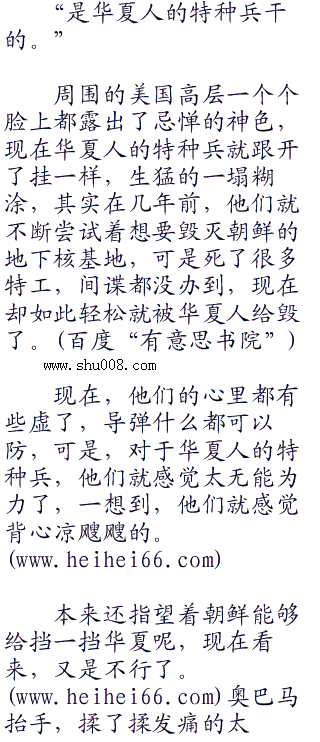 “是华夏人的特种兵干
的。”
周围的美国高层一个个
脸上都露出了忌惮的神色，
现在华夏人的特种兵就跟开
了挂一样，生猛的一塌糊
涂，其实在几年前，他们就
不断尝试着想要毁灭朝鲜的
地下核基地，可是死了很多
特工，间谍都没办到，现在
却如此轻松就被华夏人给毁
了。(百度“有意思书院”)
www.shu008.com
现在，他们的心里都有
些虚了，导弹什么都可以
防，可是，对于华夏人的特
种兵，他们就感觉太无能为
力了，一想到，他们就感觉
背心凉飕飕的。
(www.heihei66.com)
本来还指望着朝鲜能够
给挡一挡华夏呢，现在看
来，又是不行了。
(www.heihei66.com)奥巴马
抬手，揉了揉发痛的太